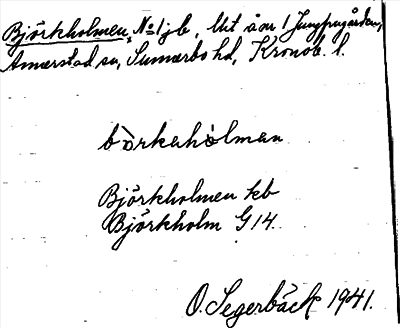 Björkholmen, No 1 jb, Utt å nr 1 Jungfrugården,
Annerstad sn, Sunnerbo hd, Kronob. l.
bòrkahòlman
Björkholmen kb
Björkholm G 14.
O. Segerbäck 1941.